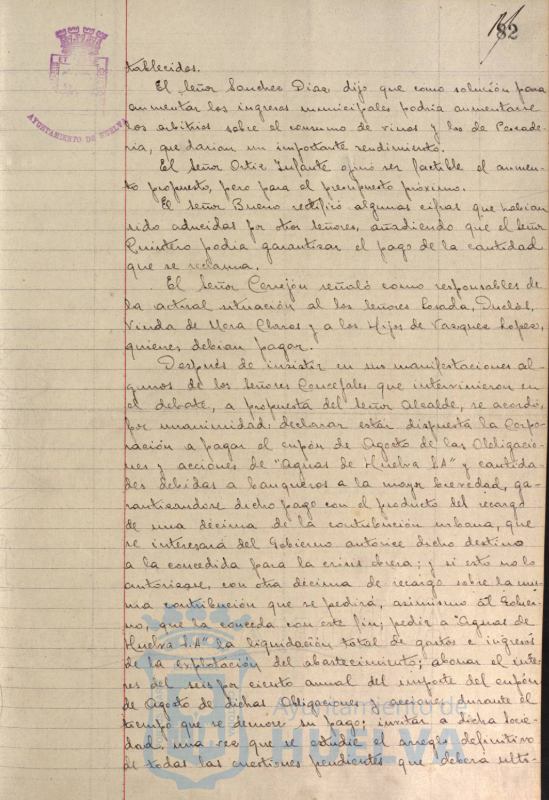 82
AYUNTAMIENTO DE HUELVA
tablecidos.
El Señor Sanchez Diaz, dijo que como solución para
aumentar los ingresos municipales podria aumentarse
los arbitrios sobre el consumo de vinos y los de Pescade-
ria, que darian un importante rendimiento.
El Señor Ortiz Infante opinó ser factible el aumen-
to propuesto, pero para el presupuesto próximo.
El Señor Bueno rectificó algunas cifras que habian
sido aducidas por otros señores, añadiendo que el Señor
Quintero podia garantizar el pago de la cantidad
que se reclama.
El Señor Cerrejón señaló como responsables de
la actual situación al los señores Losada, Duclós,
Viuda de Mora Claros y a los Hijos de Vazquez Lopez,
quienes debian pagar.
Después de insistir en sus manifestaciones al-
gunos de los Señores Concejales que intervinieron en
el debate, a propuesta del Señor Alcalde, se acordó,
por unanimidad: declarar estar dispuesta la Corpo-
ración a pagar el cupón de Agosto de las Obligacio-
nes y acciones de "Aguas de Huelva S.A" y cantida-
des debidas a banqueros a la mayor brevedad, ga-
rantizandose dicho pago con el producto del recargo
de una décima de la contribución urbana, que
se interesará del Gobierno autorice dicho destino
a la concedida para la crisis obrera; y si esto no lo
autorizase, con otra décima de recargo sobre la mis-
ma contribución que se pedirá, asimismo al Gobier-
no, que la conceda con este fin; pedir a "Aguas de
Huelva S.A" la liquidación total de gastos e ingresos
de la explotación del abastecimiento; abonar el inte-
res del seis por ciento anual del importe del cupón
de Agosto de dichas Obligaciones y acciones durante el
tiempo que se demore su pago; invitar a dicha socie-
dad, una vez que se estudie el arreglo definitivo
de todas las cuestiones pendientes que deberá ulti-
Ayuntamiento de
HUELVA